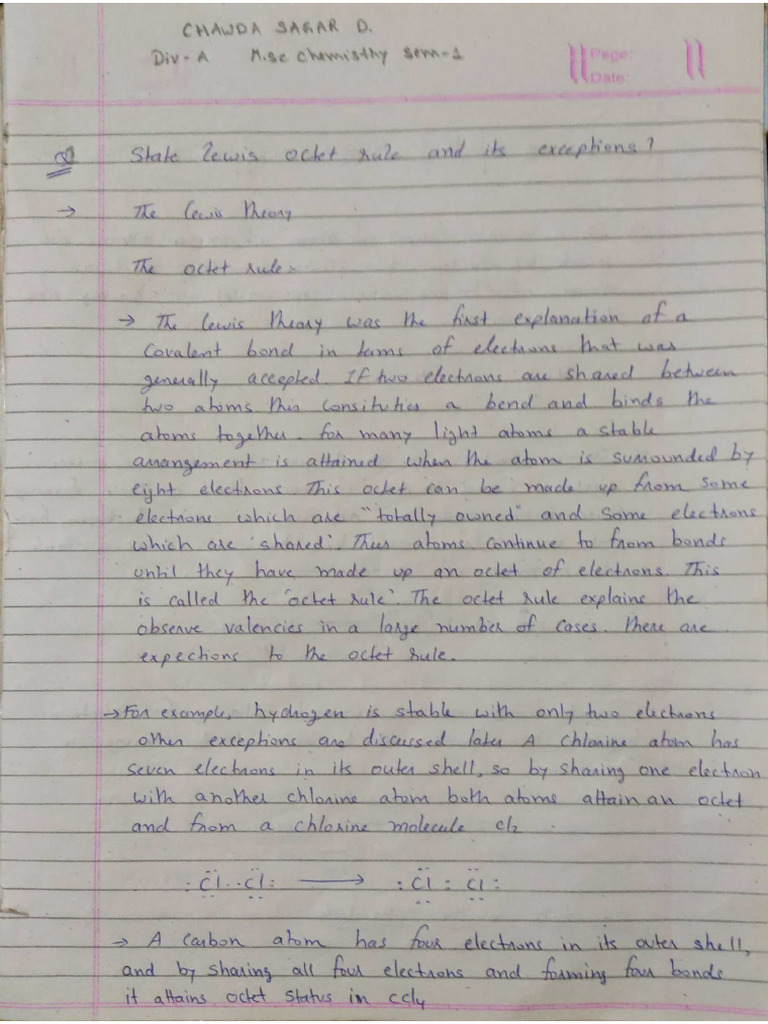 CHAWDA SAGAR D.
Div-A M.sc chemisthy sem-1
Page:
Date:
Q State lewis octet rule and its exceptions?
→ The lewis theory
The octet rule:
→ The lewis theory was the first explanation of a
Covalent bond in terms of electrons that was
generally accepted. If two electrons are shared between
two atoms this consituties a bend and binds the
atoms together. for many light atoms a stable
arrangement is attained when the atom is surrounded by
eight electrons. This octet can be made up from some
electrons which are "totally owned" and some electrons
which are 'shared'. Thus atoms continue to from bonds
until they have made up an octet of electrons. This
is called the 'octet rule'. The octet rule explains the
observe valencies in a large number of cases. there are
expections to the octet rule.
→ For example, hydrogen is stable with only two electrons
other exceptions are discussed later A chlorine atom has
seven electrons in its outer shell, so by sharing one electron
with another chlorine atom both atoms attain an octet
and from a chlorine molecule cl2
:Cl. .Cl: → :Cl : Cl:
→ A carbon atom has four electrons in its outer shell,
and by sharing all four electrons and forming four bonds
it attains octet status in ccl4